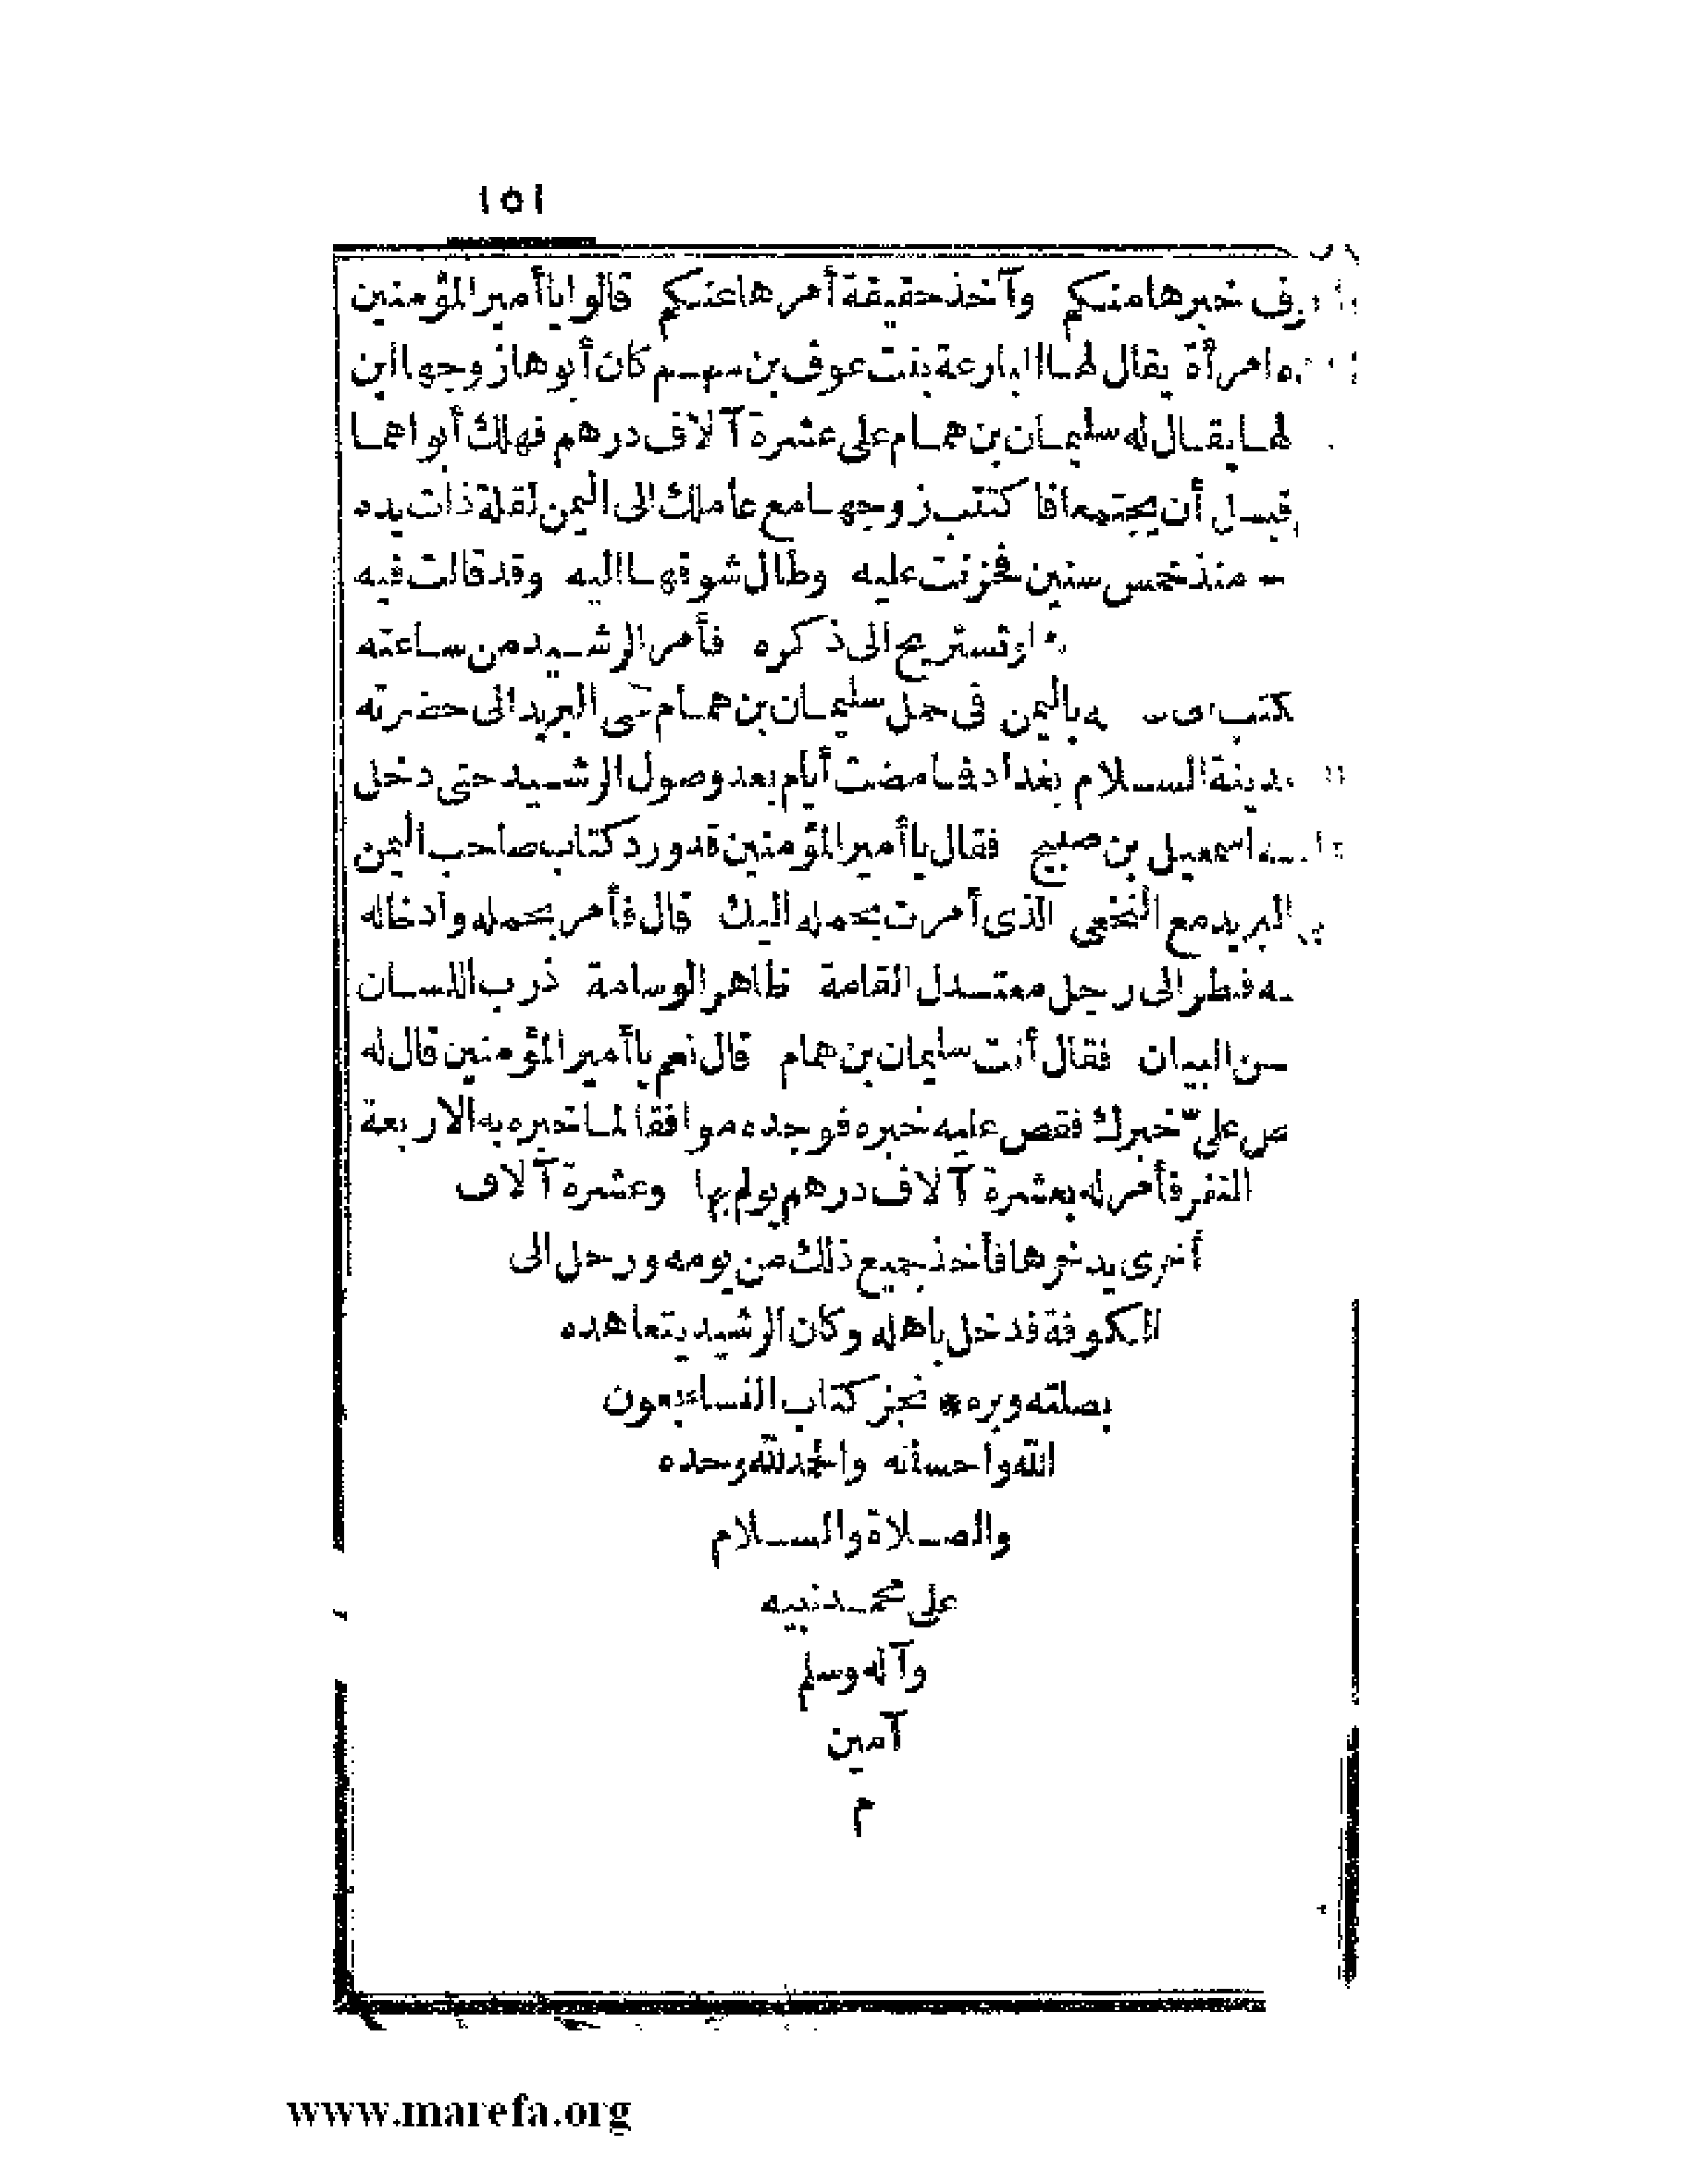 ١٥١
خبرها منكم وآخذ حقيقة أمرها عنكم قالوا يا أمير المؤمنين
امرأة يقال لها البارعة بنت عوف بن سهم كان أبوها زوجها ابن
لها يقال له سليمان بن همام على عشرة آلاف درهم فهلك أبواهما
قبل أن يجتمعا فاكتتب زوجها مع عاملك الى اليمن لقلة ذات يده
منذ خمس سنين فحزنت عليه وطال شوقها اليه وقد قالت فيه
وتستريح الى ذكره فأمر الرشيد من ساعته
باليمن فى حمل سليمان بن همام البريد الى حضرته
السلام بغداد فما مضت أيام بعد وصول الرشيد حتى دخل
اسمعيل بن صبيح فقال يا أمير المؤمنين قد ورد كتاب صاحب اليمن
البريد مع النخعى الذى أمرت بحمله اليك قال فأمر بحمله وادخاله
فنظر الى رجل معتدل القامة ظاهر الوسامة ذرب اللسان
البيان فقال أنت سليمان بن همام قال نعم يا أمير المؤمنين قال له
علىّ خبرك فقص عليه خبره فوجده موافقا لما تخبره به الاربعة
النفر فأمر له بعشرة آلاف درهم يولم بها وعشرة آلاف
أخرى يدخرها فأخذ جميع ذلك من يومه ورحل الى
الكوفة فدخل باهله وكان الرشيد يتعاهده
بصلته وبره * نجز كتاب النساء بعون
الله واحسانه والحمد لله وحده
والصلاة والسلام
على محمد نبيه
وآله وسلم
آمين
م
www.marefa.org